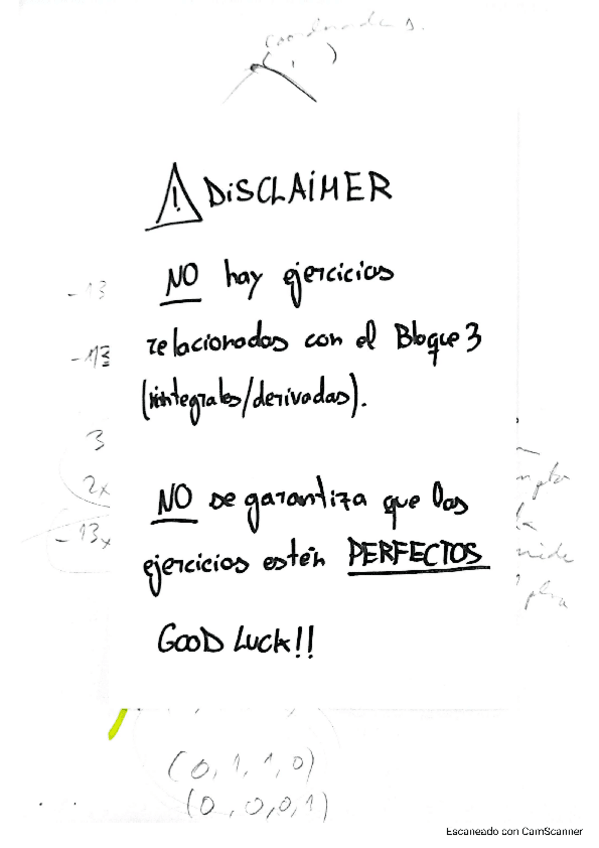 coordenadas.
( , )
! DiSCLAiMER
-13
NO hay ejercicios
relacionados con el Bloque 3
-13
(integrales/derivadas).
3
2x
NO se garantiza que los
-13x
ejercicios estén PERFECTOS
mide
GOOD LUCK!!
(0,1,1,0)
(0,0,0,1)
Escaneado con CamScanner